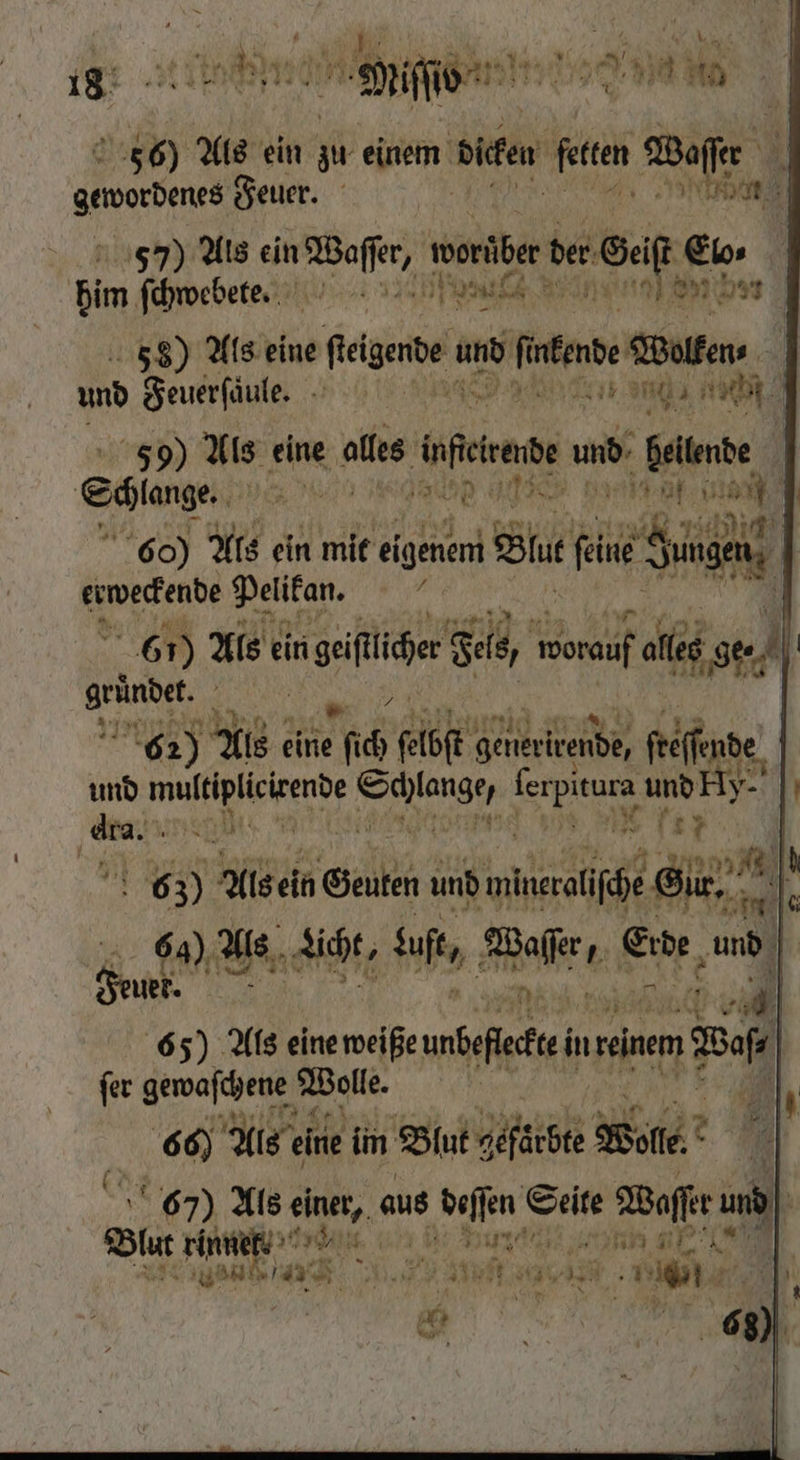 18 Miſſiv
56) Als ein zu einem dicken fetten Waſſer
gewordenes Feuer.
57) Als ein Waſſer, woruͤber der Geiſt Elo⸗
him ſchwebete.
58) Als eine ſteigende und ſinkende Wolken⸗
und Feuerſaͤule.
59) Als eine alles inficirende und heilende
Schlange.
60) Als ein mit eigenem Blut ſeine Jungen
erweckende Pelikan.
61) Als ein geiſtlicher Fels, worauf alles ge⸗
gruͤndet.
62) Als eine ſich ſelbſt generirende, freſſende
und multiplicirende Schlange, ſerpitura und Hy-
dra.
63) Als ein Geuten und mineraliſche Gur.
64) Als Licht, Luft, Waſſer, Erde und
Feuer.
65) Als eine weiße unbefleckte in reinem Waſ⸗
ſer gewaſchene Wolle.
66) Als eine im Blut gefaͤrbte Wolle.
67) Als einer, aus deſſen Seite Waſſer und
Blut rinnet.
68)